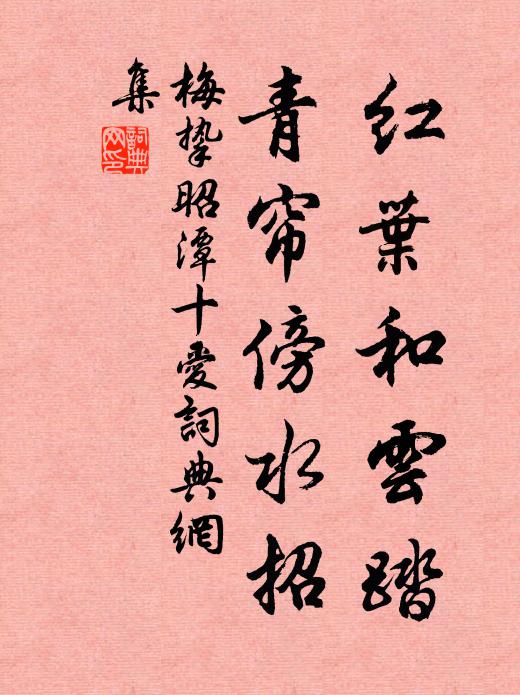 红葉和雲踏
青帘傍水招
梅摯昭潭十愛詞典網
集
詞典
网印